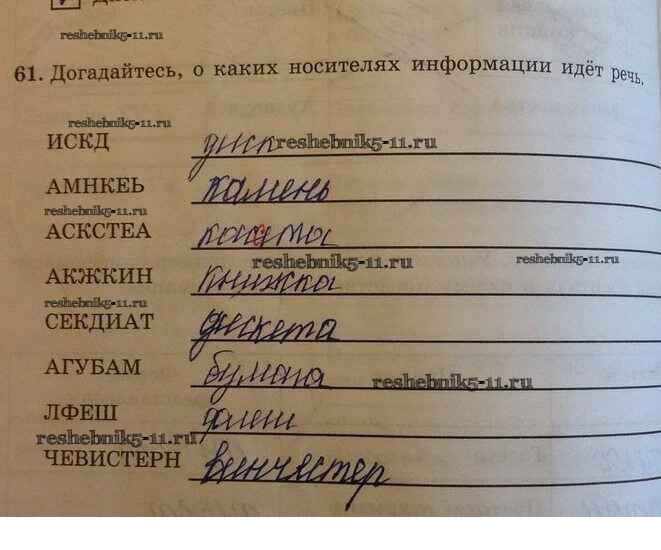 reshebnik5-11.ru
61. Догадайтесь, о каких носителях информации идёт речь.
reshebnik5-11.ru
ИСКД диск reshebnik5-11.ru
АМНКЕЬ камень
reshebnik5-11.ru
АСКСТЕА
reshebnik5-11.ru reshebnik5-11.ru
АКЖКИН книжка
reshebnik5-11.ru
СЕКДИАТ дискета
АГУБАМ бумага
reshebnik5-11.ru
ЛФЕШ флеш
reshebnik5-11.ru
ЧЕВИСТЕРН винчестер